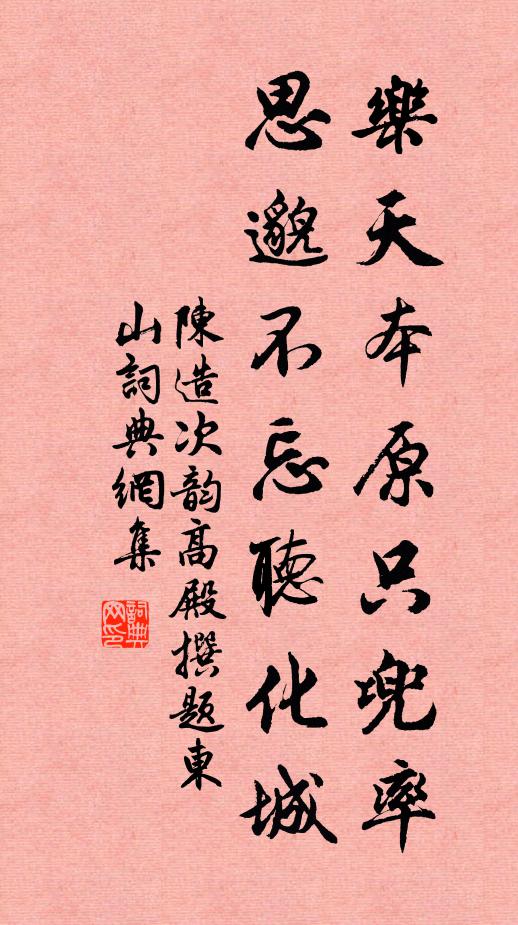 樂天本原只兜率
思邈不忘聽化城
陳造次韵高殿撰題東
山詞典網集
詞典網印